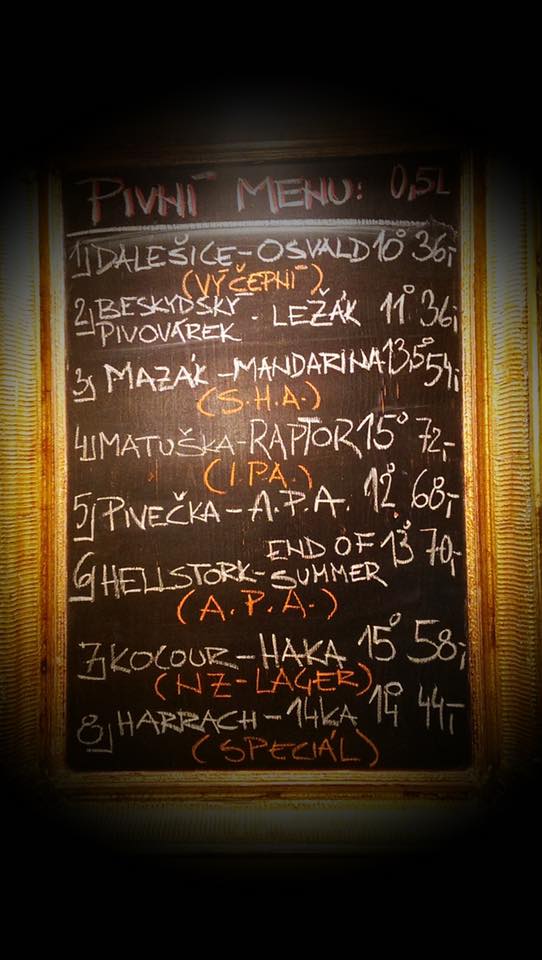 PIVNÍ MENU: 0,5L
1) DALEŠICE-OSVALD 10° 36,-
(VÝČEPNÍ)
2) BESKYDSKÝ PIVOVÁREK - LEŽÁK 11° 36,-
3) MAZÁK-MANDARINA 13,5° 54,-
(S.H.A.)
4) MATUŠKA-RAPTOR 15° 72,-
(I.P.A.)
5) PIVEČKA-A.P.A. 12° 68,-
6) HELLSTORK-END OF SUMMER 13° 70,-
(A.P.A.)
7) KOCOUR-HAKA 15° 58,-
(NZ-LAGER)
8) HARRACH-14KA 14° 44,-
(SPECIÁL)